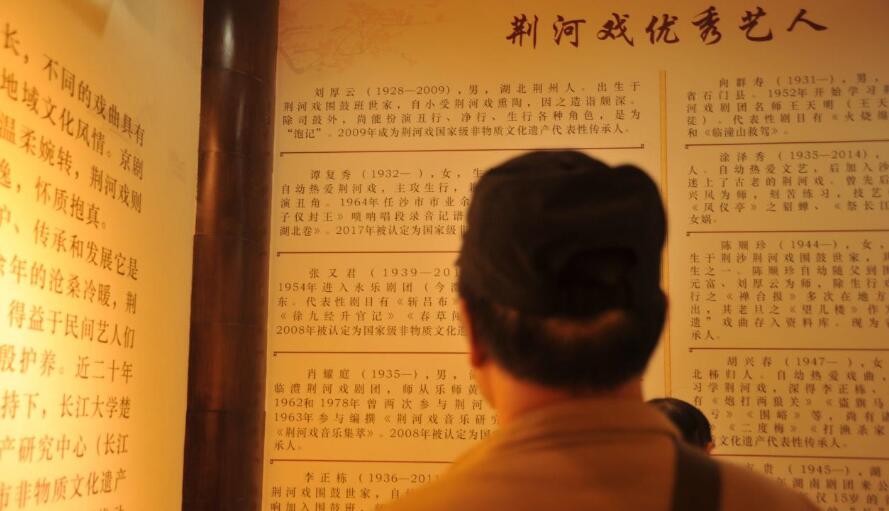 长，不同的戏曲具有
地域文化风情。京剧
温柔婉转，荆河戏则
逸，怀质抱真。
护、传承和发展它是
余年的沧桑冷暖，荆
得益于民间艺人们
般护养。近二十年
持下，长江大学楚
产研究中心（长江
市非物质文化遗产
荆河戏优秀艺人
刘厚云（1928—2009），男，湖北荆州人。出生于
荆河戏围鼓班世家，自小受荆河戏熏陶，因之造诣颇深。
除司鼓外，尚能扮演丑行、净行、生行各种角色，是为
“泡记”。2009年成为荆河戏国家级非物质文化遗产代表性传承人。
谭复秀（1932—），女，生
自幼热爱荆河戏，主攻生行，
演丑角。1964年任沙市市业余
子仪封王》唢呐唱段录音记谱
湖北卷》。2017年被认定为国家级非
张又君（1939—201
1954年进入永乐剧团（今澧
东。代表性剧目有《斩吕布》
《徐九经升官记》《春草闯
2008年被认定为国家级非物质文化
肖耀庭（1935—），男，
临澧荆河戏剧团，师从乐师黄
1962和1978年曾两次参与荆河
1963年参与编撰《荆河戏音乐研究
《荆河戏音乐集萃》。2008年被认定为国
承人。
李正栋（1936—2011
荆河戏围鼓世家，自
响加入围鼓班，
向群寿（1931—），男，
省石门县。1952年开始学习荆
河戏剧团名师王天明（王天
徒）。代表性剧目有《火烧绵
和《临潼山救驾》。
涂泽秀（1935—2014），
人。自幼热爱文艺，后加入沙
迷上了古老的荆河戏。曾先后
兴凤为师，刻苦练习，技艺
《凤仪亭》之貂蝉、《祭长江
女娲。
陈顺珍（1944—），女，
生于荆沙荆河戏围鼓世家，
生之一。陈顺珍自幼随父到
元富、刘厚云为师，除生行
行之《禅台报》多次在地方
出，其老旦之《望儿楼》作
遗”戏曲存入资料库。现为
承人。
胡兴春（1947—），女
北秭归人。自幼热爱戏曲，
习学荆河戏，深得李正栋、
有《炮打两狼关》《盗旗马
亏》《围峪》等，尚有
《二度梅》《打渔杀家
文化遗产代表性传承人。
贵（1945—），湖
年湖南剧团来公
仅15岁的